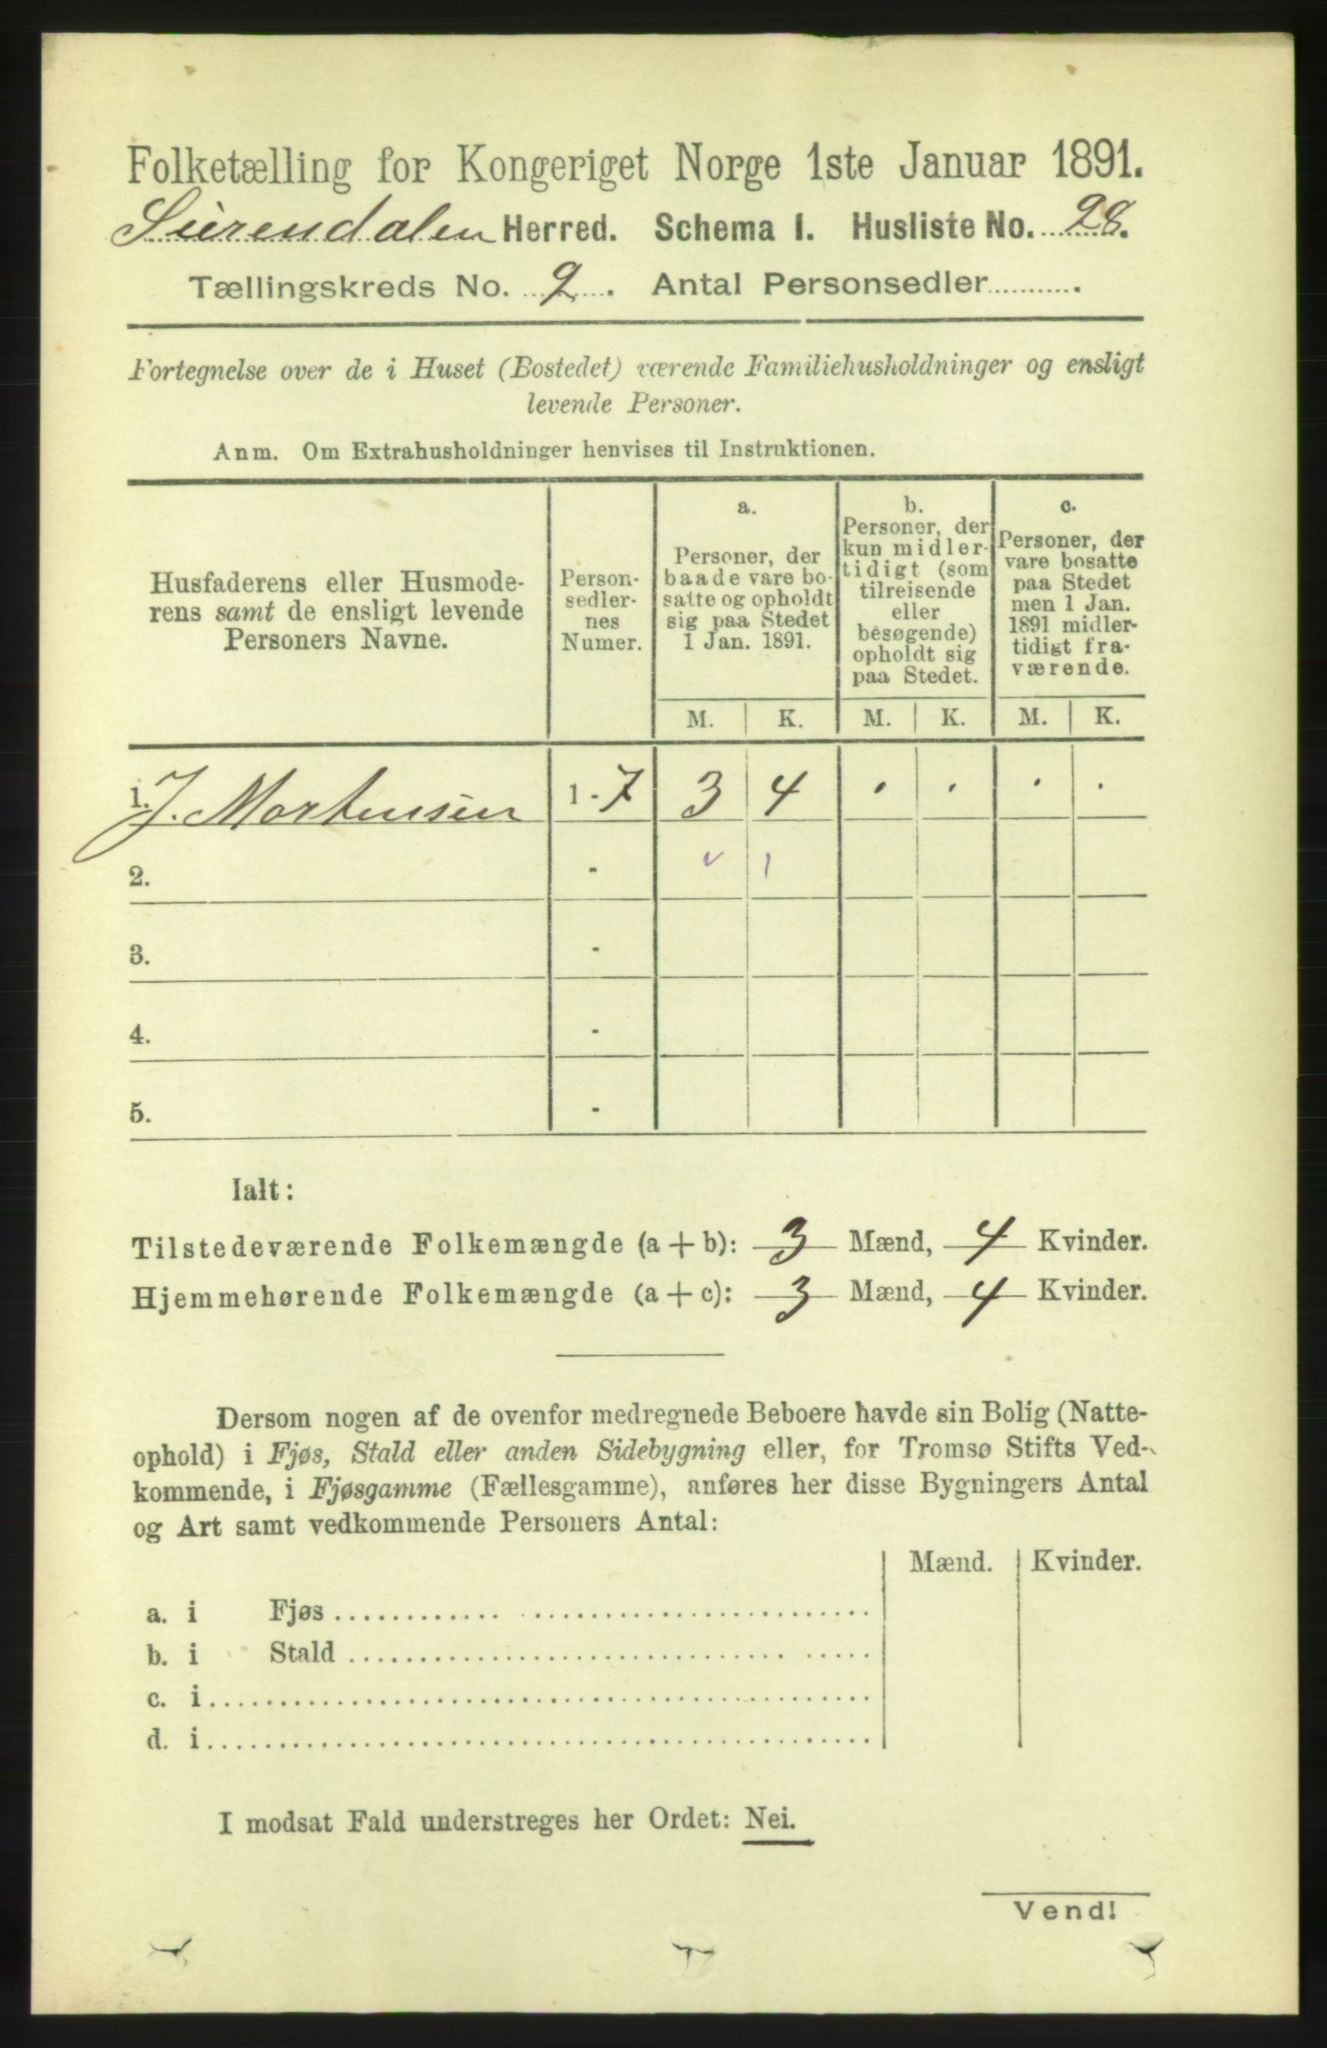 Folketælling for Kongeriget Norge 1ste Januar 1891.
Surendalen Herred. Schema I. Husliste No. 28.
Tællingskreds No. 2. Antal Personsedler .
Fortegnelse over de i Huset (Bostedet) værende Familiehusholdninger og ensligt
levende Personer.
Anm. Om Extrahusholdninger henvises til Instruktionen.
Husfaderens eller Husmode-
rens samt de ensligt levende
Personers Navne.
Person-
sedler-
nes
Numer.
a.
Personer, der
baade vare bo-
satte og opholdt
sig paa Stedet
1 Jan. 1891.
b.
Personer, der
kun midler-
tidigt (som
tilreisende
eller
besøgende)
opholdt sig
paa Stedet.
c.
Personer, der
vare bosatte
paa Stedet
men 1 Jan.
1891 midler-
tidigt fra-
værende.
M. K. M. K. M. K.
1. J. Mortensen 1 - 7 3 4 . . . .
2. - v 1
3. -
4. -
5. -
Ialt:
Tilstedeværende Folkemængde (a + b): 3 Mænd, 4 Kvinder.
Hjemmehørende Folkemængde (a + c): 3 Mænd, 4 Kvinder.
Dersom nogen af de ovenfor medregnede Beboere havde sin Bolig (Natte-
ophold) i Fjøs, Stald eller anden Sidebygning eller, for Tromsø Stifts Ved-
kommende, i Fjøsgamme (Fællesgamme), anføres her disse Bygningers Antal
og Art samt vedkommende Personers Antal:
Mænd. Kvinder.
a. i Fjøs
b. i Stald
c. i
d. i
I modsat Fald understreges her Ordet: Nei.
Vend!